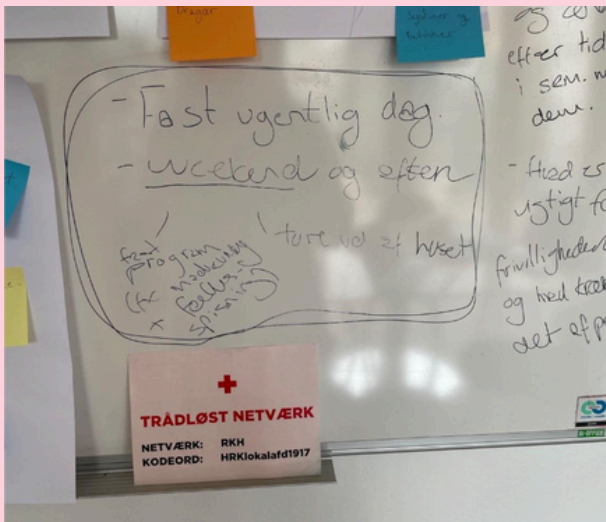 Dragør
Sydhavn og
- Fast ugentlig dag.
- weekend og aften
fast
program
(fx madlavning
+ fælles-
spisning)
ture ud af huset
og
efter tid
i sem.
dem.
- Hvad er
vigtigt fo
frivilligheden
og hvad kræ
det af
TRÅDLØST NETVÆRK
NETVÆRK: RKH
KODEORD: HRKlokalafd1917